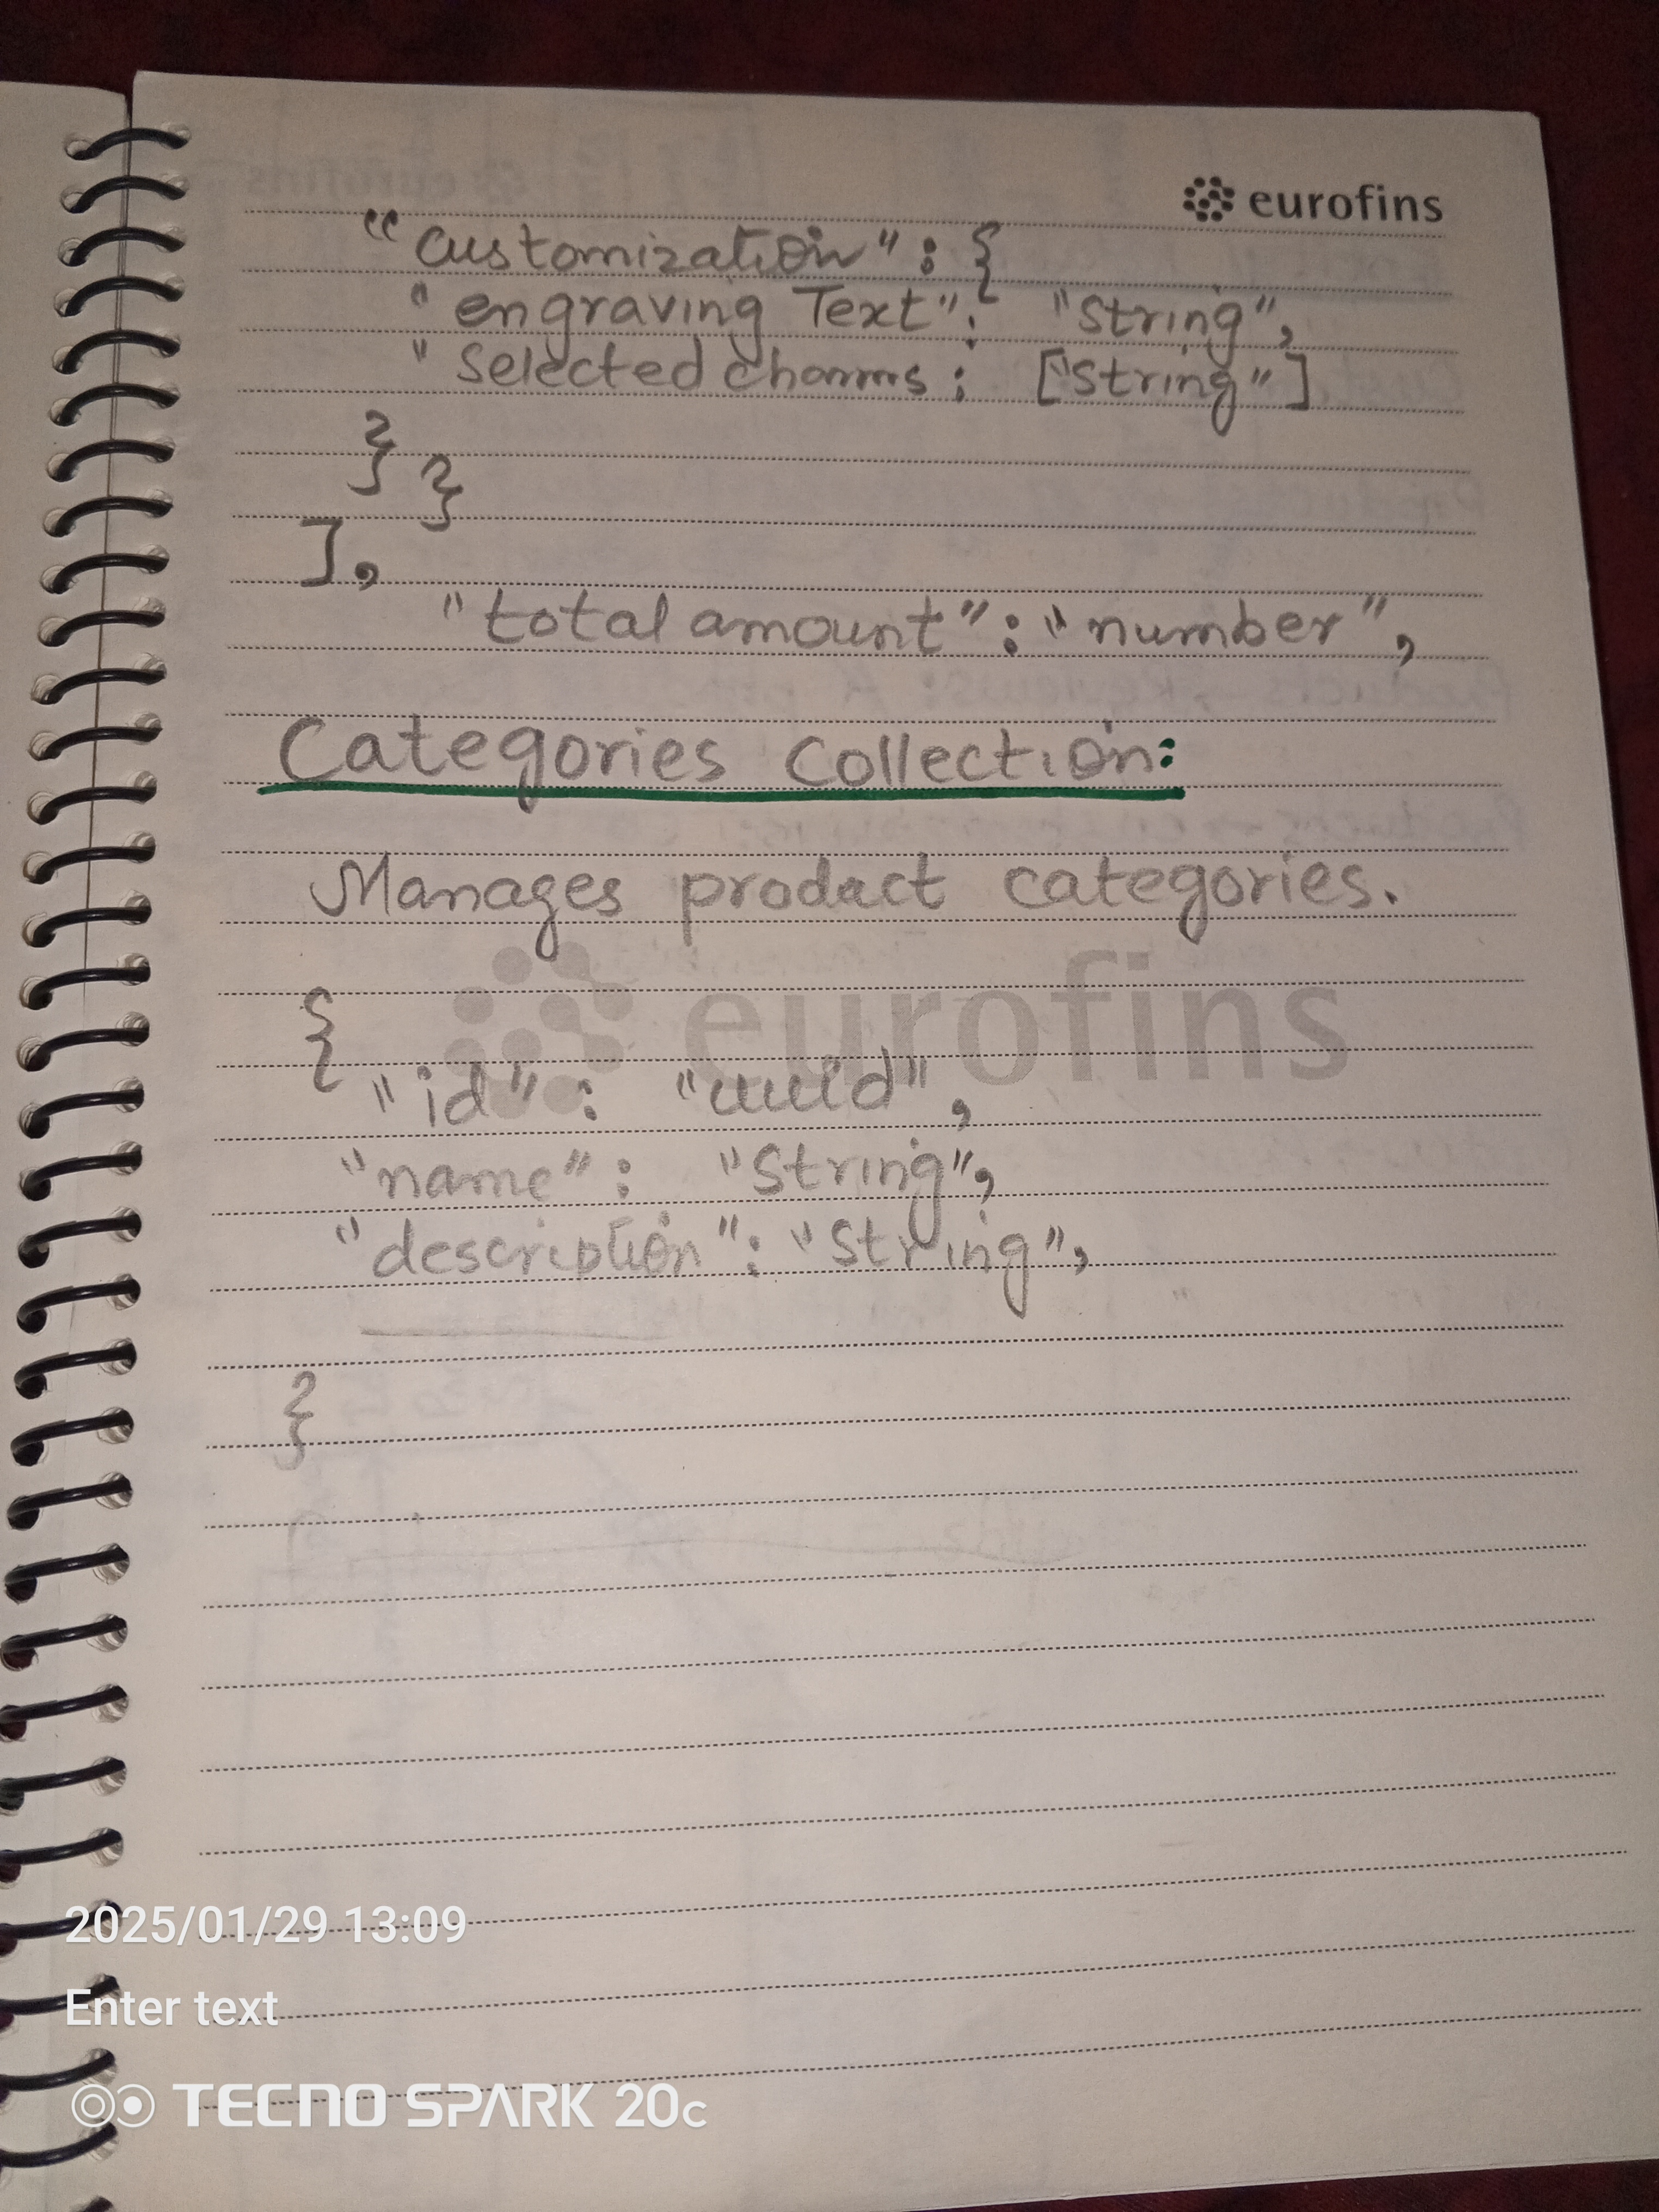 eurofins
"customization": {
"engraving Text": "string",
"selectedcharms: ["string"]
}
}
],
"total amount": "number",
Categories Collection:
Manages product categories.
eurofins
{
"id": "uuid",
"name": "string",
"description": "string",
}
2025/01/29 13:09
Enter text
TECNO SPARK 20c